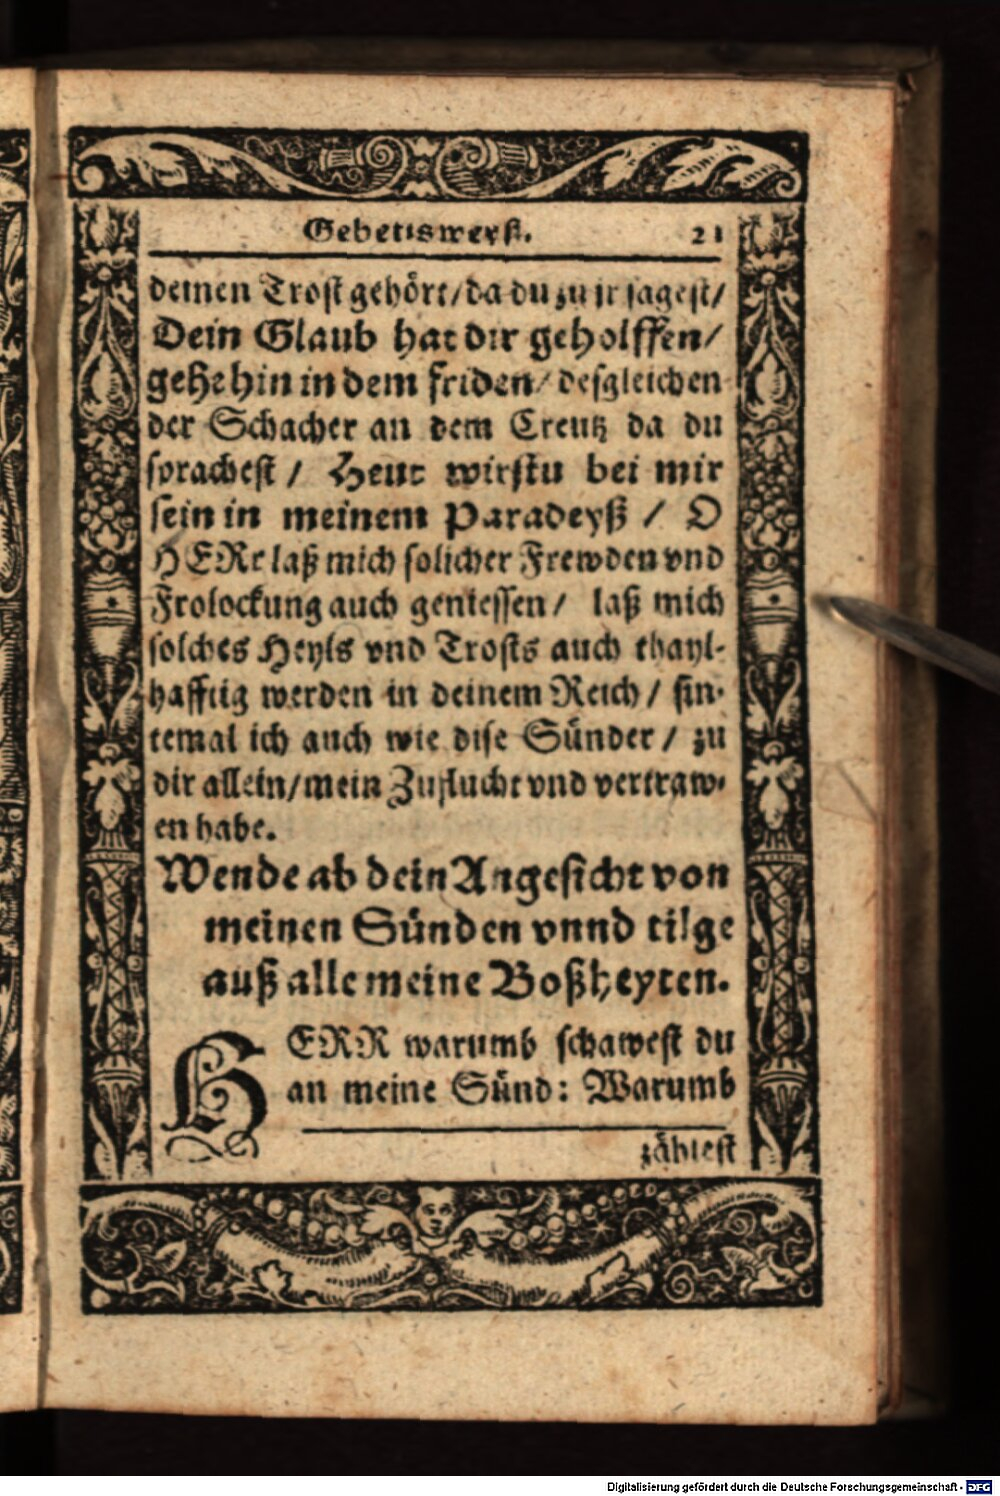 Gebettsweyß. 21
deinen Trost gehört/da du zu jr sagest/
Dein Glaub hat dir geholffen/
gehe hin in dem friden/ desgleichen
der Schacher an dem Creutz da du
sprachest / Heut wirstu bei mir
sein in meinem Paradeyß / O
HERr laß mich solicher Frewden vnd
Frolockung auch geniessen/ laß mich
solches Heyls vnd Trosts auch thayl-
hafftig werden in deinem Reich / sin-
temal ich auch wie dise Sünder / zu
dir allein/mein Zuflucht vnd vertraw-
en habe.
Wende ab dein Angesicht von
meinen Sünden vnnd tilge
auß alle meine Boßheyten.
HERR warumb schawest du
an meine Sünd: Warumb
zählest
Digitalisierung gefördert durch die Deutsche Forschungsgemeinschaft - DFG